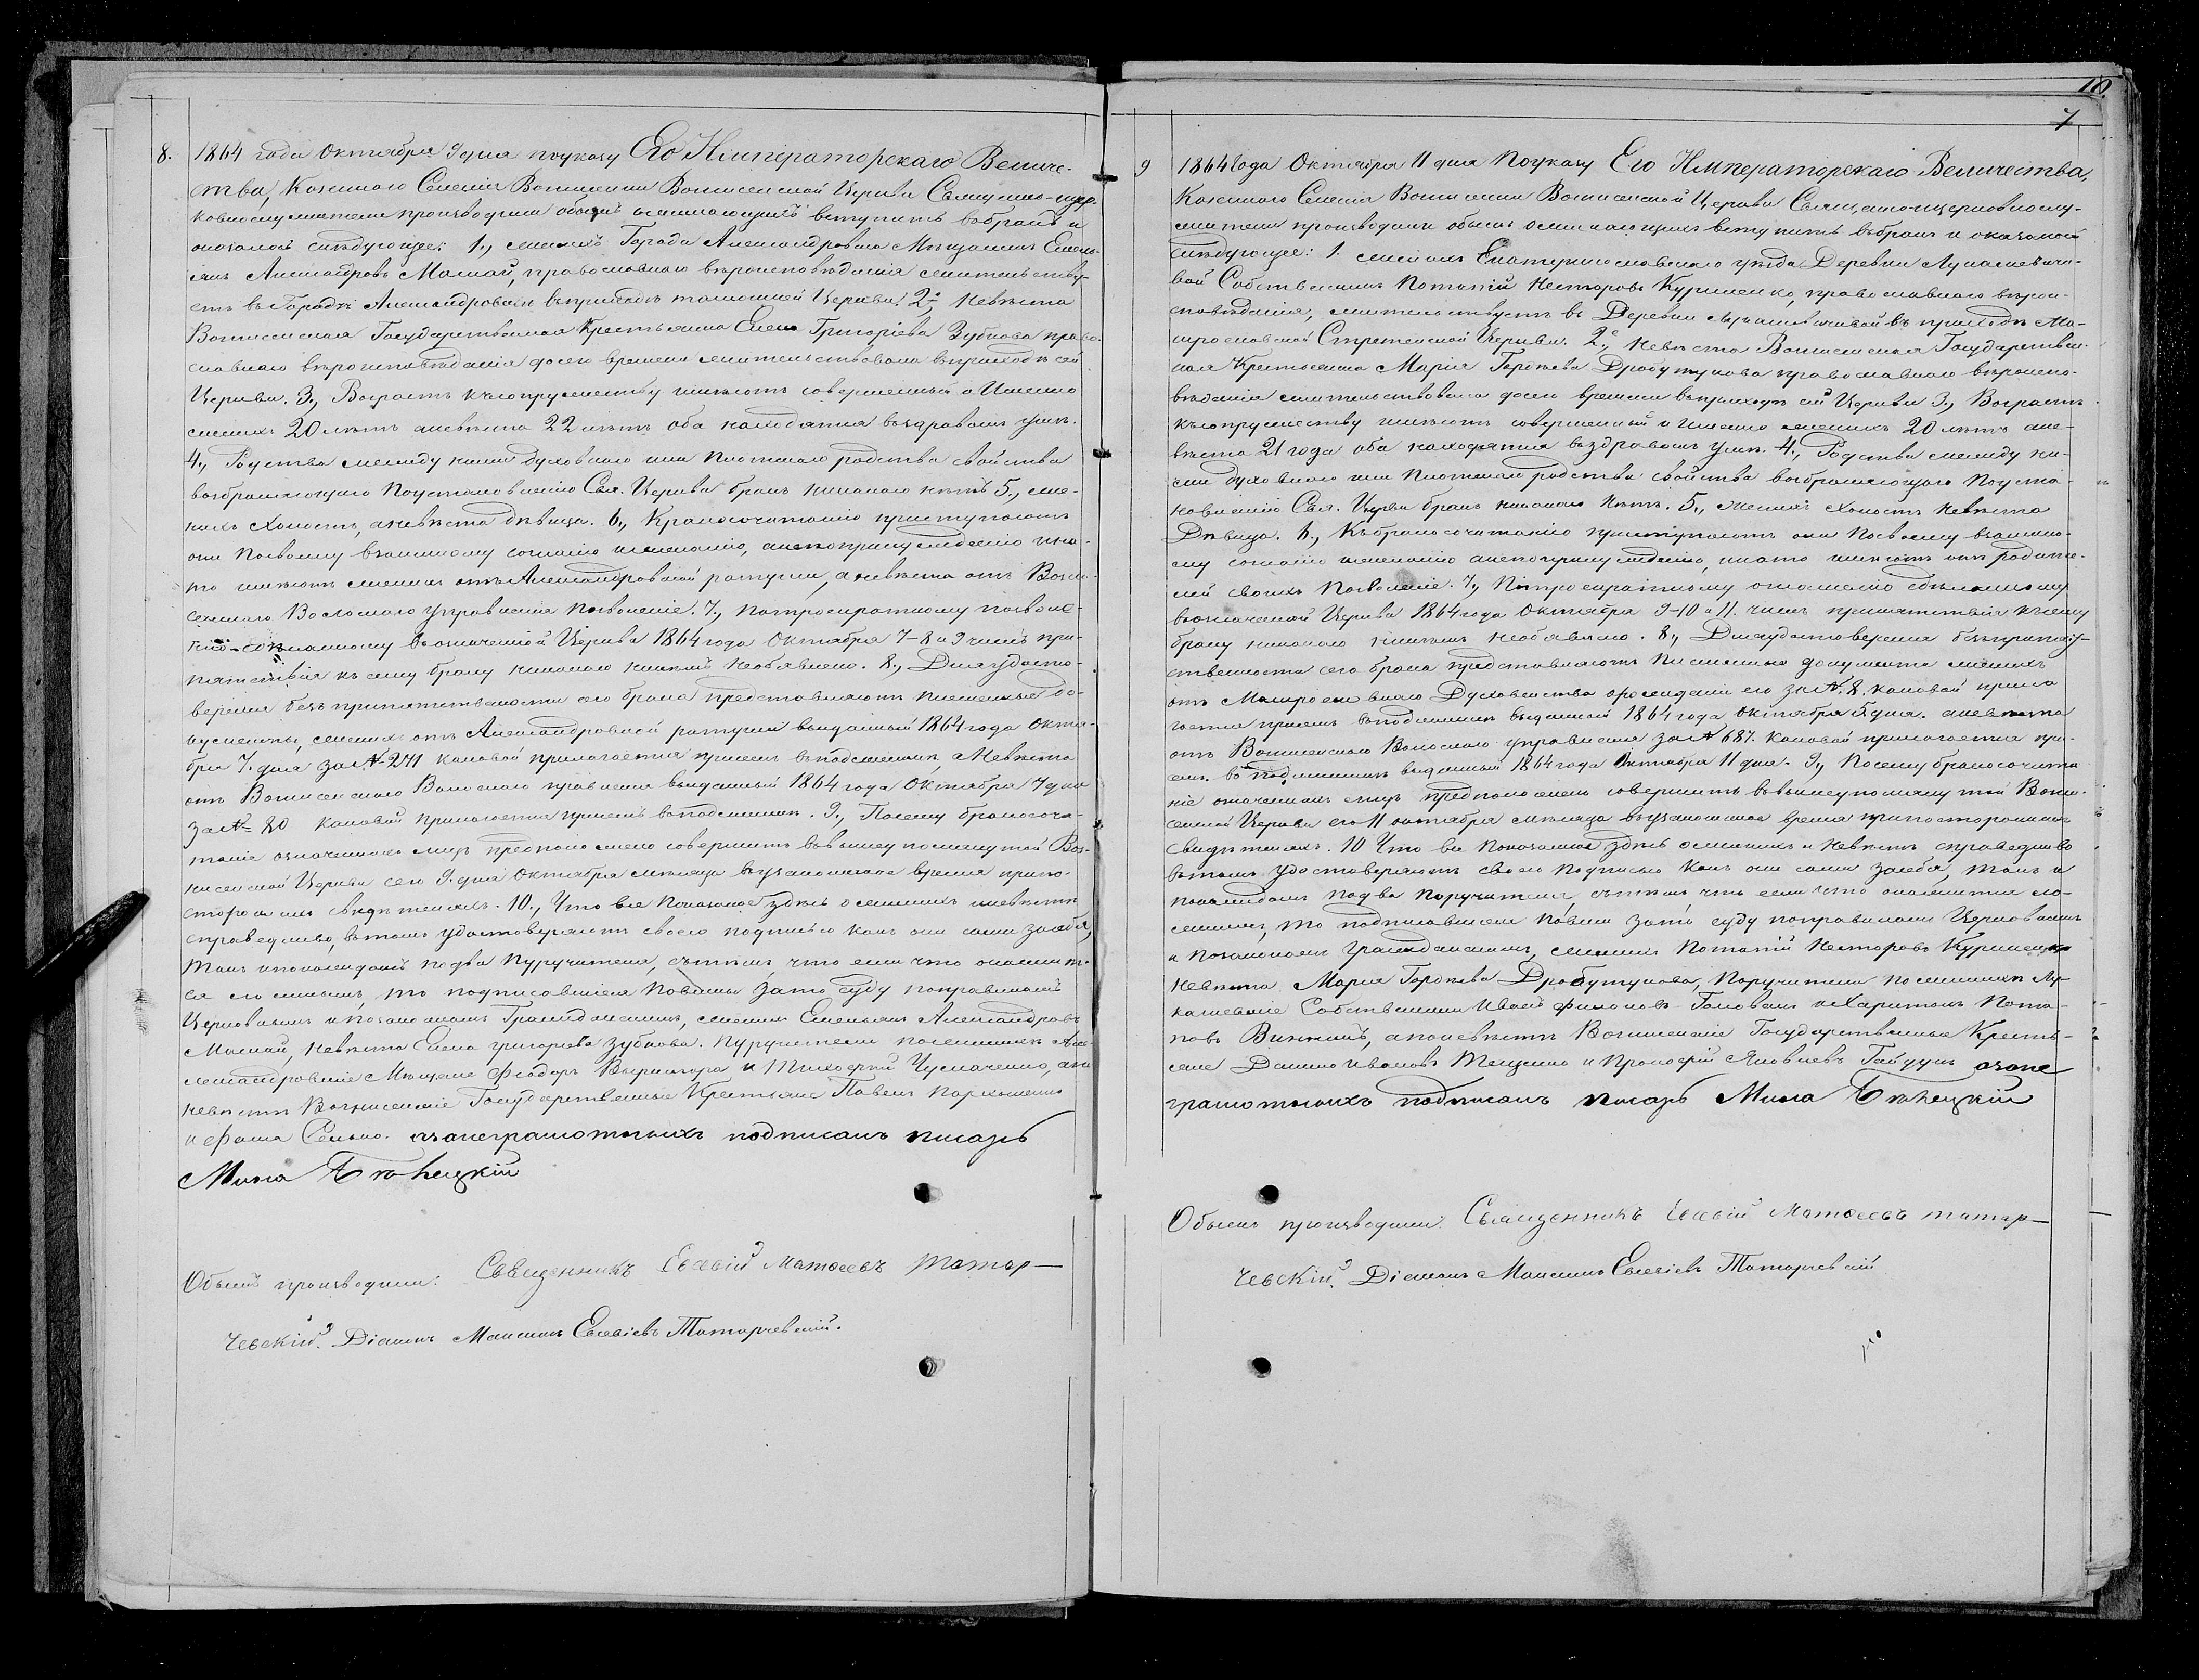 8. 1864 года Октября 9 дня поуказу Его Императорскаго Величе-
ства, Казеннаго Селенія Вознесенки Вознесенской Церкви Священно-цер-
ковнослужители производили обыскъ ожелающихъ вступить вобракъ и
оказалось слѣдующее: 1., женихъ Города Александровска Мѣщанинъ Емель-
янъ Александровъ Малый, православнаго вѣроисповѣданія жительству-
етъ въ Городѣ Александровскѣ въприходѣ тамошней Церкви. 2е, Невѣста
Вознесенская Государственная Крестьянка Елена Григоріева Зубкова право-
славнаго вѣроисповѣданія досего времени жительствовала въприходѣ сей
Церкви. 3., Возрастъ къ супружеству имѣютъ совершенный а Именно
женихъ 20 лѣтъ аневѣста 22 лѣтъ оба находятся въздравомъ умѣ.
4., Родства между ними духовнаго или плотскаго родства свойства
возбраняющаго Поустановленію Свя. Церкви бракъ никакого нѣтъ 5., же-
нихъ Холостъ, аневѣста дѣвица. 6., Кбракосочетанію приступаютъ
они Посвоему взаимному согласію ижеланію, анепопринужденію ина-
то имѣютъ женихъ отъ Александровской ратуши, аневѣста отъ Возне-
сенскаго Волостнаго Управленія позволеніе. 7., Потроекратному позволе-
нію-сдѣланному възначенной Церкви 1864 года Октября 7-8 и 9 числъ пре-
пятствія къ сему браку никакого никѣмъ необявлено. 8., Для удосто-
веренія безпрепятственности сего брака представляютъ писменные до-
кументы, женихъ отъ Александровской ратуши выданный 1864 года Октя-
бря 7. дня за № 2711 каковый прилагается присемъ въподлинникѣ, Невѣста
отъ Вознесенскаго Волостнаго правленія выданный 1864 года Октября 7 дня
за № 80 каковый прилогается присемъ вподлинникѣ. 9., Посему бракосоче-
таніе означенныхъ лицъ предположено совершить въвышеупомянутой Воз-
несенской Церкви сего 9. дня Октября мѣсяца въузаконенное время припо-
стороннихъ свидѣтеляхъ. 10., Что все показанное здѣсь ожених иневѣстѣ
справедливо, вътомъ удостоверяютъ своею подписью какъ они сами засебя,
такъ ипокаждомъ подва Пуручителя, сътемъ, что если что окажит-
ся ложнымъ, то подписавшіеся повинны зато суду поправиламъ
Церковнымъ ипозаконамъ Гражданскимъ, женихъ Емельянъ Александровъ
Малый, Невѣста Елена Григорева Зубкова. Пуручители поженихѣ Але-
ксандровскіе Мѣщане Феодоръ Вырвихоря и Тимофѣй Чуманченко, апо
невѣстѣ Вознесенскіе Государственные Крестьяне Павелъ Пархоменко
и Фома Сенько. азанеграмотныхъ подписалъ писарь
Мина Бѣлецкій
Обыскъ производили: Священникъ Евсевій Матѳеевъ Татар-
чевскій. Діаконъ Максимъ Евсевіевъ Татарчевскій.
10.
7
9 1864 года Октября 11 дня Поуказу Его Императорскаго Величества,
Казеннаго Селенія Вознесенки Вознесенской Церкви Священно-церковнослу-
жители производили обыскъ ожелающихъ вступить въбракъ и оказалось
слѣдующее: 1. женихъ Екатеринославскаго уѣзда Деревни Лукашевича-
вой Собственникъ Потапій Несторовъ Куриленко, православнаго вѣрои-
сповѣданія, жительствуетъ въ Деревни Лукашевичивой въ приходѣ Ма-
широславской Стретенской Церкви. 2е, Невѣста Вознесенская Государствен-
ная Крестьянка Марія Гордѣева Дробутукова православнаго вѣроиспо-
вѣданія жительствовала досего времени въприходѣ сей Церкви 3., Возрастъ
къ супружеству имѣютъ совершенный а Именно женихъ 20 лѣтъ ане-
вѣста 21 года оба находятся въздравомъ умѣ. 4., Родства между ни-
ми духовнаго или Плотскаго родства свойства возбраняющаго Поуста-
новленію Свя. Церкви бракъ никакого Нѣтъ. 5., женихъ холостъ Невѣста
Дѣвица. 6., Къбракосочетанію приступаютъ они Посвоему взаимно-
му согласію ижеланію анепопринужденію, инато имѣютъ отъ родите-
лей своихъ Позволеніе. 7., Потроекратному оглашенію сдѣланному
възначенной Церкви 1864 года Октября 9-10 и 11. числъ препятствія ксему
браку никакого никѣмъ необявлено. 8., Дляудостоверенія безпрепят-
ственности сего брака представляютъ Писменные документы женихъ
отъ Духовенства за № 8. каковый прила
гается присемъ въподлинникѣ выданный 1864 года Октября 5 дня. аневѣста
отъ Вознесенскаго Волостнаго управленія за № 687. Каковый прилагается при-
семъ. во подлинникѣ выданный 1864 года Октября 11 дня. 9., Посему бракосочета
ніе означенныхъ лицъ предположено совершить въвышеупомянутой Возне-
сенской Церкви сего 11 октября мѣсяца въузаконенное время припостороннихъ
свидѣтеляхъ. 10 Что все Показанное здѣсь ожених и Невѣстѣ справедливо
вътомъ удостоверяютъ своею подписью какъ они сами засебя, такъ и
покаждомъ подва поручителя, сътемъ что если что окажится ло-
жнымъ, то подписавшіеся повинны зато суду поправиламъ Церковнымъ
и позаконамъ гражданскимъ, женихъ Потапій Несторовъ Куриленко
Невѣста Марія Гордѣева Дробутукова, Поручители поженихѣ Лу-
кашевскіе Собственники Иванъ Филоновъ Головань и Харитонъ Пота-
повъ, апоневѣстѣ Вознесенскіе Государственные Кресть-
яне Данило Ивановъ Тещенко и Прокофій Яковлевъ Гайдукъ азане
грамотныхъ подписалъ писарь Мина Бѣлецкій
Обыскъ производили: Священникъ Евсевій Матѳеевъ Татар-
чевскій. Діаконъ Максимъ Евсевіевъ Татарчевскій